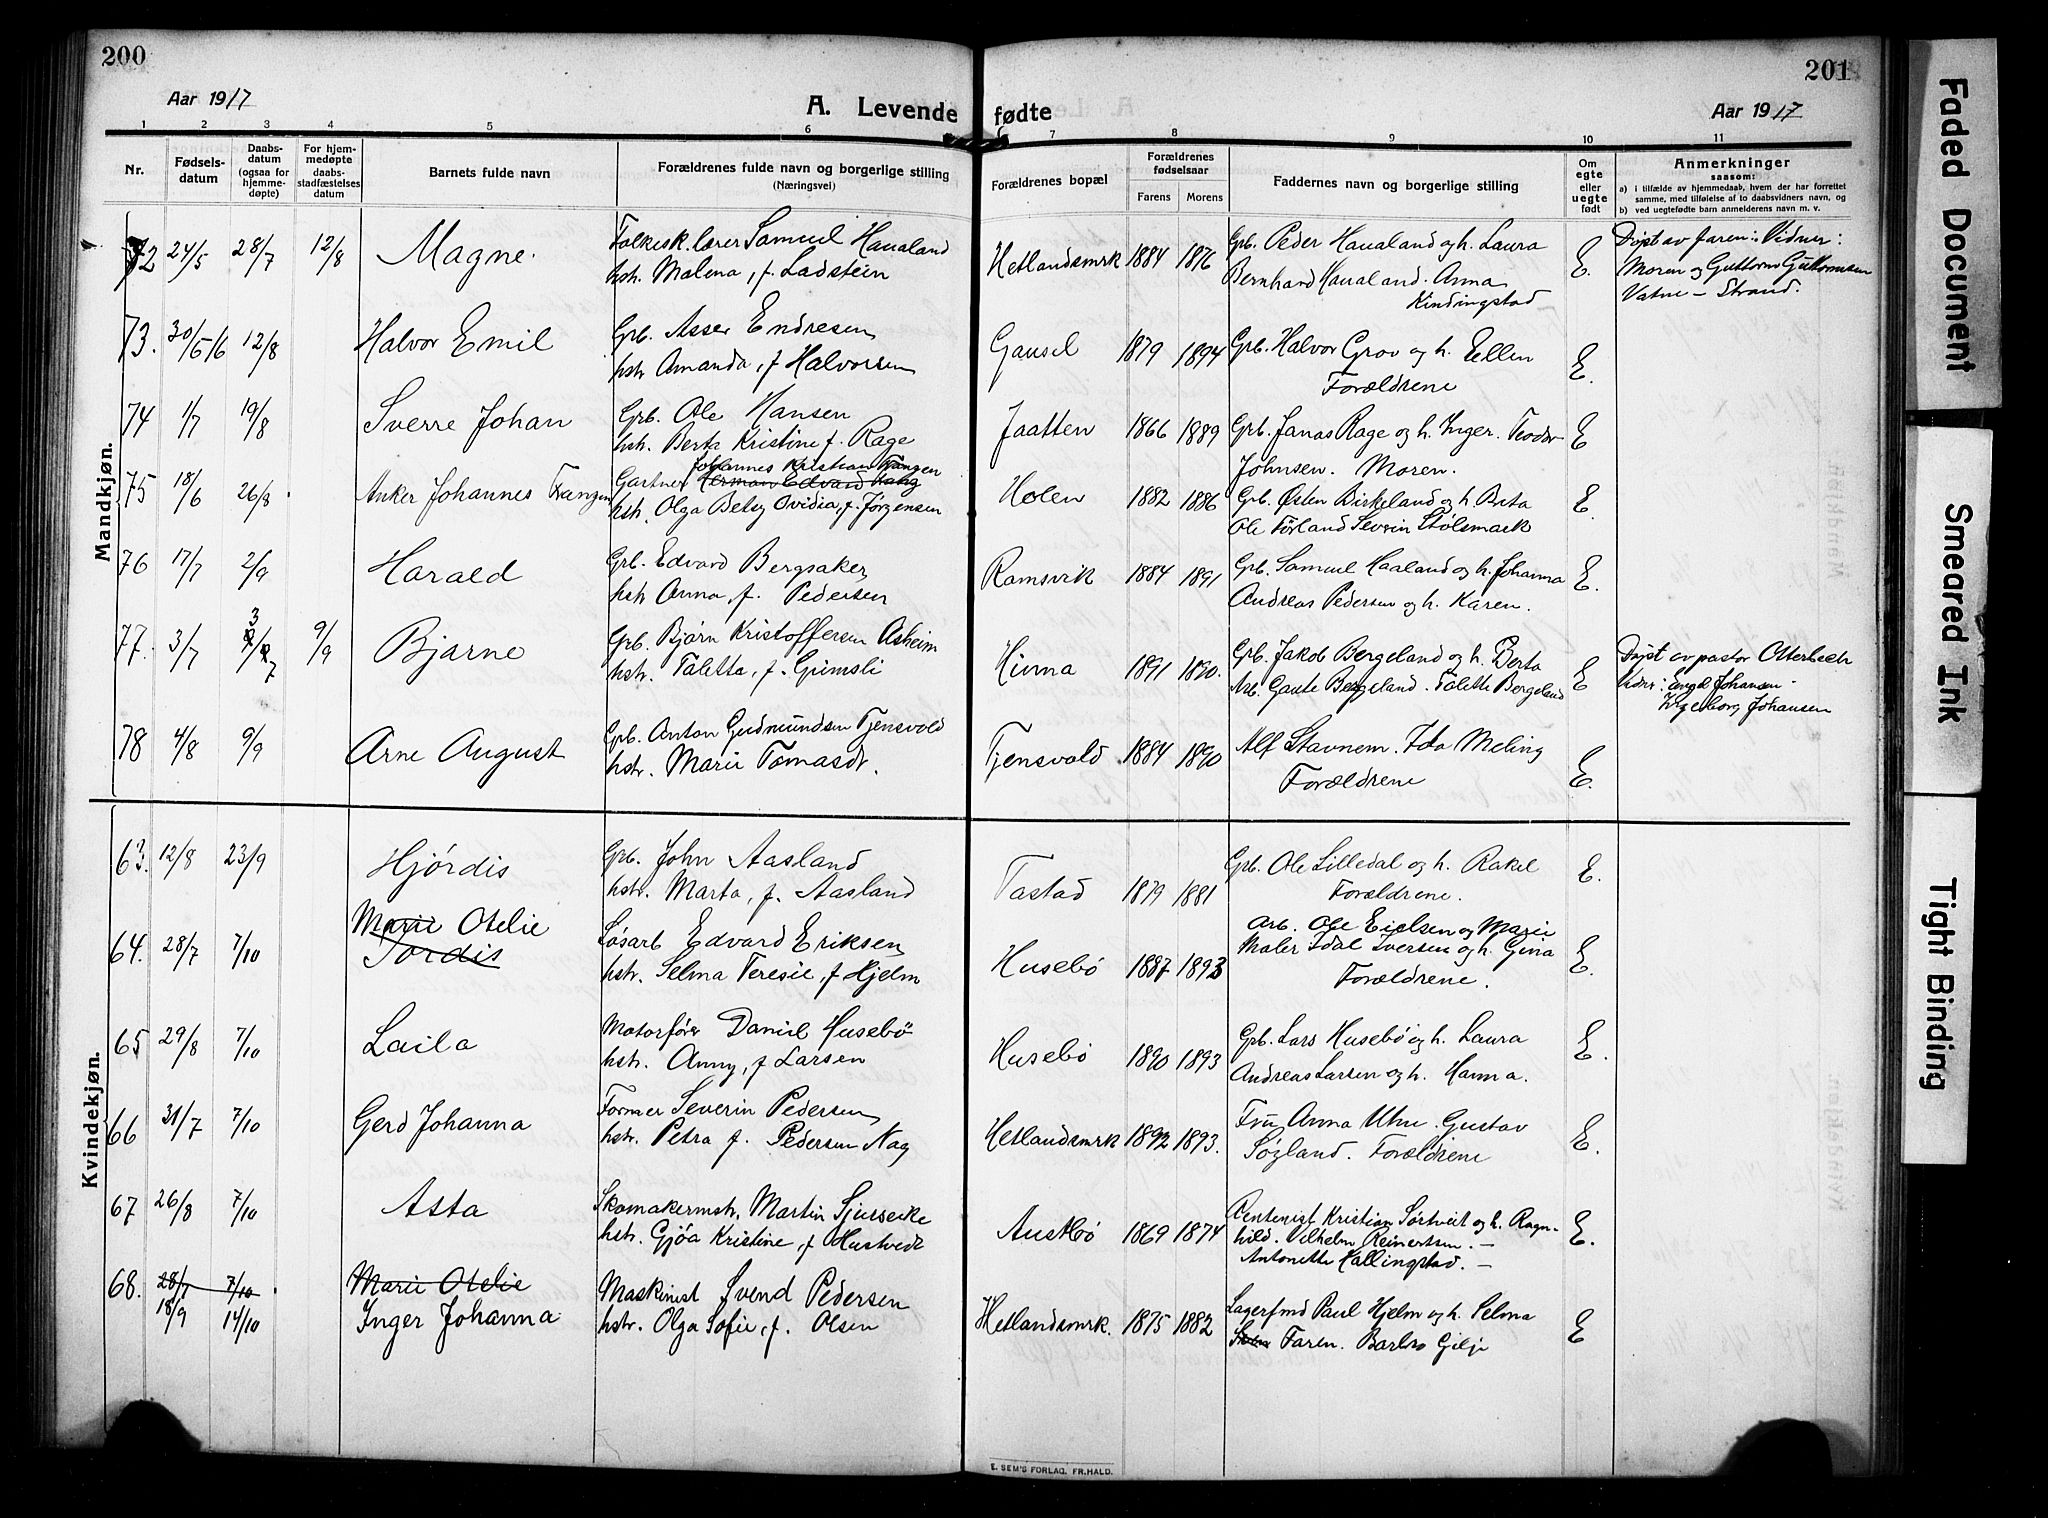 200
201
Aar 1917
A. Levende
fødte
Aar 1917
1 2 3 4 5 6 7 8 9 10 11
Nr.
Fødsels-
datum
Daabs-
datum
(ogsaa for
hjemme-
døpte)
For hjem-
medøpte
daabs-
stadfæstelses
datum
Barnets fulde navn
Forældrenes fulde navn og borgerlige stilling
(Næringsvei)
Forældrenes bopæl
Forældrenes
fødselsaar
Farens Morens
Faddernes navn og borgerlige stilling
Om
egte
eller
uegte
født
Anmerkninger
saasom:
a) i tilfælde av hjemmedaab, hvem der har forrettet
samme, med tilføielse af to daabsvidners navn, og
b) ved uegtefødte barn anmelderens navn m. v.
Mandkjøn.
72 24/5 28/7 12/8 Magne.
Folkesk.lærer Samuel Haualand
hstr. Malena, f. Ladstein
Hetlandsmrk 1884 1876
Grb. Peder Haualand og h. Laura
Bernhard Haualand. Anna
Kindingstad
E.
Døpt av faren: Vidner:
Moren og Guttorm Guttormsen
Vatne - Strand.
73. 30/5 12/8 Halvor Emil
Grb. Asser Endresen
hstr Amanda, f Halvorsen
Gausel 1879 1894
Grb. Halvor Grov og h. Ellen
Forældrene
E.
74 1/7 19/8 Sverre Johan
Grb. Ole Hansen
hstr. Berta Kristine f. Rage
Jaatten 1866 1889
Grb. Jonas Rage og h. Inger. Teodor
Johnsen. Moren.
E
75 18/6 26/8 Anker Johannes Trangen
Johannes Kristian Trangen
Gartner Herman Edvard
hstr. Olga Betsy Ovidia, f. Jørgensen
Holen 1882 1886
Grb. Østen Birkeland og h Berta
Ole Førland Severin Stølsmark
E.
76 17/7 2/9 Harald
Grb. Edvard Bergsaker
hstr Anna, f. Pedersen
Ramsvik 1884 1891
Grb. Samuel Haaland og h. Johanna
Andreas Pedersen og h. Karen.
E.
77. 3/7 3/7 9/9 Bjarne
Grb. Bjørn Kristoffersen Asheim
hstr. Taletta, f. Grimsli
Hinna 1891 1890.
Grb. Jakob Bergeland og h. Berta
Arb. Gaute Bergeland. Talette Bergeland
E
Døpt av pastor Otterbech
Vidner: Engel Johansen
Ingeborg Johansen
78 4/8 9/9 Arne August
Grb. Anton Gudmundsen Tjensvold
hstr. Marie Tomasdr.
Tjensvold 1884 1890
Alf Stavnem. Ida Meling
Forældrene
E.
Kvindekjøn.
63. 12/8 23/9 Hjørdis
Grb. John Aasland
hstr. Marta, f. Aasland
Tastad 1879 1881
Grb. Ole Lilledal og h. Rakel
Forældrene.
E.
64. 28/7 7/10 Marie Otelie
Tordis
Løsarb Edvard Eriksen
hstr. Selma Teresie, f Hjelm
Husebø 1887 1893
Arb. Ole Eielsen og Marie
Maler Idal Iversen og h. Gina
Forældrene.
E.
65 29/8 7/10 Laila
Motorfører Daniel Husebø
hstr. Anny, f Larsen
Husebø 1890 1893
Grb. Lars Husebø og h. Laura
Andreas Larsen og h. Hanna.
E.
66 31/7 7/10 Gerd Johanna
Former Severin Pedersen
hstr. Petra f. Pedersen Nag
Hetlandsmrk 1892 1893.
Fru Anna Uhu. Gustav
Søyland. Forældrene
E.
67 26/8 7/10 Asta
Skomakermstr. Martin Sjurseike
hstr. Gjøa Kristine, f Hustvedt
Austbø 1869 1874
Rentenist Kristian Sørtveit og h. Ragn-
hild. Vilhelm Reinertsen. —
Antonette Hallingstad. —
E.
68. 28/7 7/10 Marie Otelie
18/9 14/10 Inger Johanna
Maskinist Svend Pedersen
hstr. Olga Sofie, f. Olsen
Hetlandsmrk. 1875 1882
Lagerfmd Paul Hjelm og h. Selma
Faren. Barbro Gilje
E
E. SEM'S FORLAG, FR.HALD.
Faded Document
Smeared Ink
Tight Binding